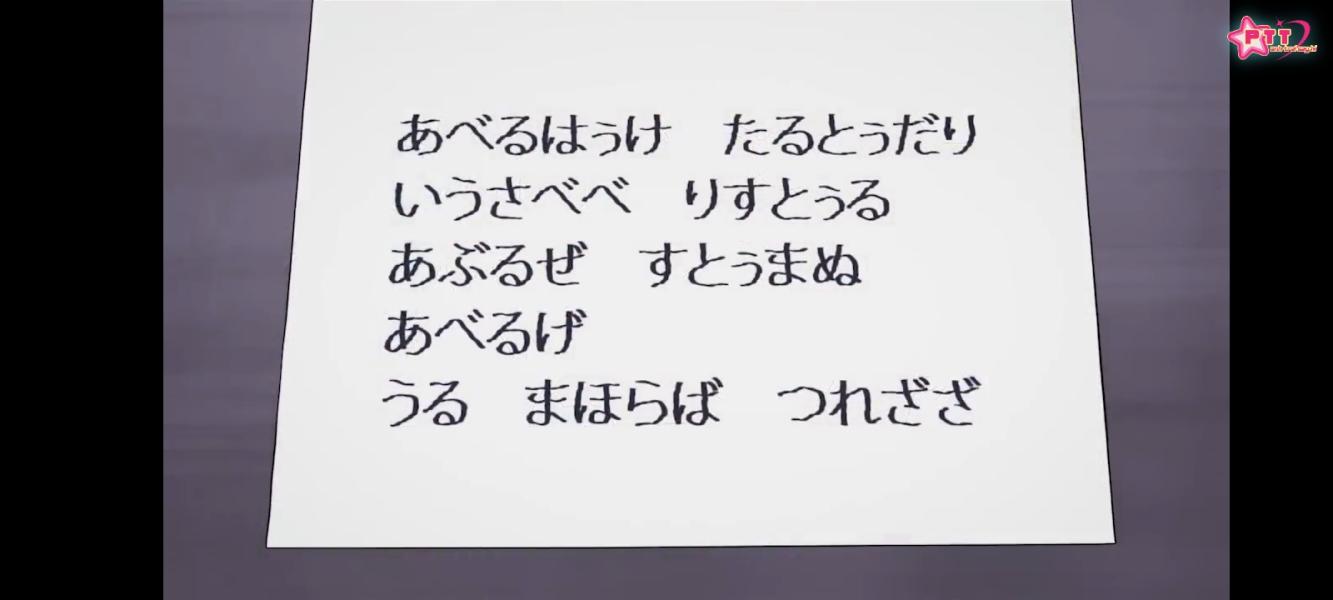 あべるはぅけ　たるとぅだり
いうさべべ　りすとぅる
あぶるぜ　すとぅまぬ
あべるげ
うる　まほらば　つれざざ
PTT